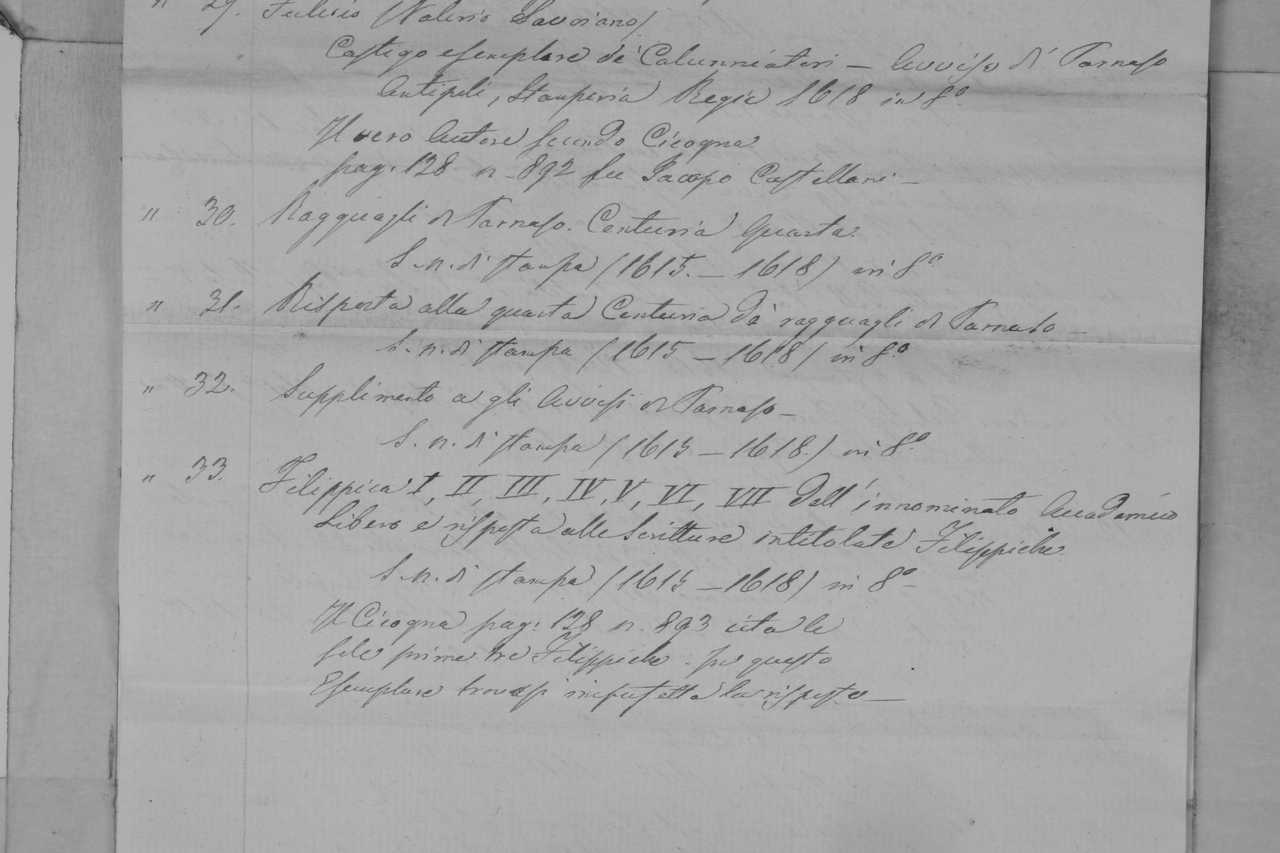 " 29. Fulvio (Valerio Savoiano)
Castigo esemplare de' Calunniatori – Avviso di Parnaso
Antipoli, Stamperia Regia 1618 in 8°
Il vero Autore secondo Cicogna
pag: 128 n. 892 fu Jacopo Castellani –
" 30. Ragguagli di Parnaso. Centuria Quarta.
S. n. di stampa (1615. – 1618) in 8°
" 31. Risposta alla quarta Centuria de' ragguagli di Parnaso –
S. n. di stampa (1615 – 1618) in 8°
" 32. Supplimento a gli Avvisi di Parnaso –
S. n. di stampa (1615 – 1618.) in 8°
" 33. Filippica I, II, III, IV, V, VI, VII dell'innominato Accademico
Libero e risposta alle Scritture intitolate Filippiche
S. n. di stampa (1615 – 1618) in 8°
Il Cicogna pag: 128 n. 893 cita le
sole prime tre Filippiche. In questo
Esemplare trovasi imperfetta la risposta –